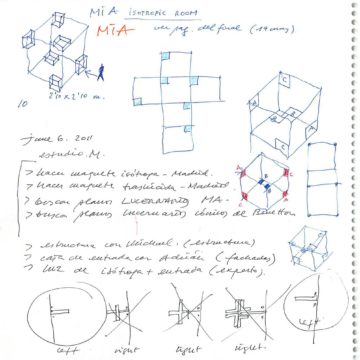 MIA ISOTROPIC ROOM
MIA ver pag. del final (-14 mas)
2'10 x 2'10 m.
10
C
A
B
B
C
june 6. 2011
estudio M.
> hacer maquete isótropa - Madrid.
> hacer maquete traslúcida - Madrid.
> buscar planos Lucernario MA-
> buscar planos lucernarios cónicos de
> estructura con Michael. (-estructura)
> caja de entrada con Adrián (-fachadas)
> luz de isótropa + entrada (experto).
left
right
right
right.
left